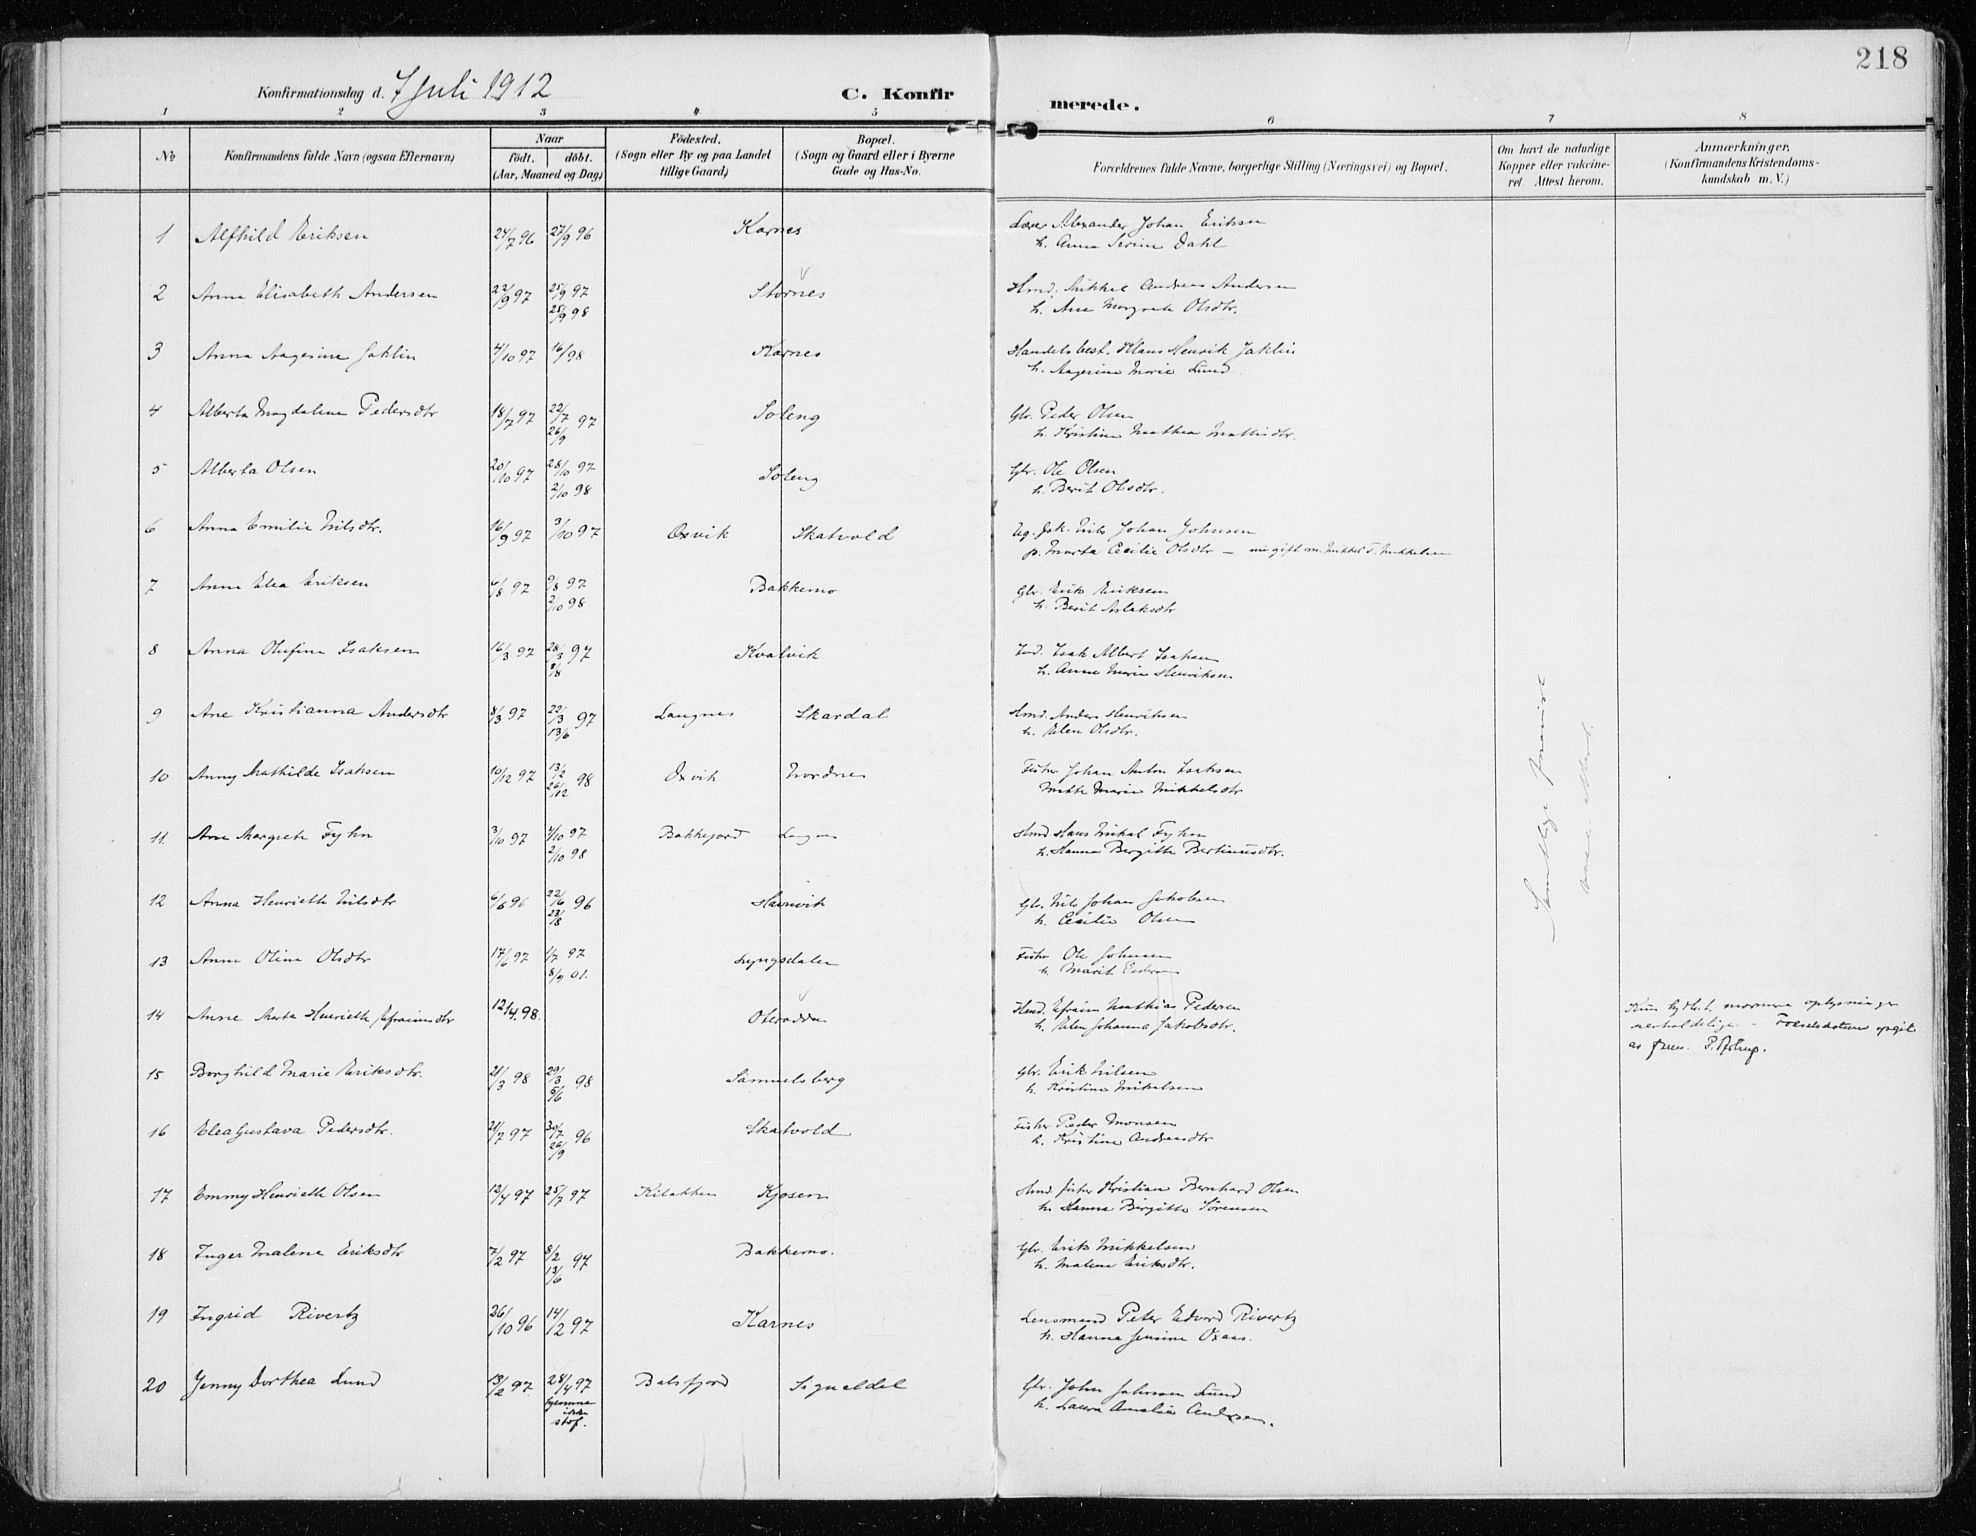 218
Konfirmationsdag d. 7 Juli 1912
C. Konfirmerede.
1 2 3 4 5 6 7 8
No
Konfirmandens fulde Navn (ogsaa Efternavn)
Naar
födt. döbt.
(Aar, Maaned og Dag)
Födested.
(Sogn eller By og paa Landet
tillige Gaard)
Bopæl.
(Sogn og Gaard eller i Byerne
Gade og Hus-No.
Forældrenes fulde Navne, borgerlige Stilling (Næringsvei) og Bopæl.
Om havt de naturlige
Kopper eller vakcine-
ret. Attest herom.
Anmærkninger.
(Konfirmandens Kristendoms-
kundskab m. V.)
1 Alfhild Eriksen 24/7 96 27/9 96 Karnes Alexander Johan Eriksen
h. Anna Serine Dahl
2 Anna Elisabeth Andersen 22/9 97 25/9 97 Stornes Hmd. Mikkel Andreas Andersen
25/9 98 h. Ane Margrete Olsdtr.
3 Anna Aagesine Jaklin 4/10 97 16/ 98 Karnes Handelsbest. Klaus Henrik Jaklin
h. Aagesine Marie Lund
4 Alberta Magdalena Pedersdtr 18/7 97 22/7 26/9 97 Soleng Gbr. Peder Olsen
h. Kristine Mathea Mattisdtr.
5 Alberta Olsen 20/10 97 28/10 97 Soleng Gbr. Ole Olsen
2/10 98 h. Berit Olsdtr.
6 Anna Emilie Nilsdtr. 16/9 97 3/10 97 Oxvik Skatvold Ug. fsk. Nils Johan Johnsen
p. Marta Cecilie Olsdtr — nu gift m. Mikkel T. Mikkelsen
7 Anne Elea Eriksen 4/8 97 9/8 97 Bakkemo Gbr. Erik Eriksen
2/10 98 h. Berit Aslaksdtr
8 Anna Olufine Isaksen 16/3 97 28/3 8/8 97 Kvalvik Isak Albert Isaksen
h. Anne Marie Henriksen
9 Ane Kristianna Andersdtr 8/3 97 22/3 13/6 97 Langnes Skardal Hmd. Anders Henriksen
h. Elen Olsdtr.
10 Anny Mathilde Isaksen 10/12 97 13/2 26/12 98 Oxvik Nordnes Fisker Johan Anton Isaksen
Mette Marie Mikkelsdtr
11. Ane Margrete Fyhn 3/10 97 4/10 97 Bakkejord Langnes Hmd Hans Mikal Fyhn
2/10 98 h. Hanna Bergitte Bertinusdtr.
12 Anna Henriette Nilsdtr 6/6 96 22/6 23/8 96 Havnvik Gbr. Nils Johan Jakobsen
h. Cecilie Olsen
13 Anne Oline Olsdtr 17/6 97 1/7 97 Lyngsdalen Fisker Ole Johnsen
8/9 01. h. Marit
14 Anne Marta Henriette Efraimsdtr 12/4. 98. Oteradden Hmd. Efraim Mathias Pedersen
h. Elen Johanna Jakobsdtr.
Kun tydel. normere oplysninger
erholdelige. – Fødselsdatum opgit
av foræl. P. Astrup.
15 Borghild Marie Eriksdtr. 21/3 98 29/3 5/6 98 Samuelsberg Gbr. Erik Nilsen
h. Kristine Mikalsen
16 Elea Gustava Pedersdtr. 21/7 97 30/7 26/9 96 Skatvold Fisker Peder Monsen
h. Kristine Andreasdtr
17 Emmy Henriette Olsen 12/4 97 25/7 97 Kilakken Kjosen Hmd. fisker Kristian Bernhard Olsen
h. Hanna Birgitte Sörensen
18 Inger Malena Eriksdtr 7/2 97 8/2 13/6 97 Bakkemo. Gbr. Erik Mikkelsen
h. Malene Eriksdtr.
19 Ingrid Rivertz 26/10 96 14/12 97 Karnes Lensmand Peter Edvard Rivertz
h. Hanna Jensine Oxaas.
20 Jenny Dorthea Lund 13/2 97. 28/4 97 Balsfjord Signaldal Gbr. John Johnsen Lund
hjemme
ikke
staf.
h. Laura Amalie Andersen.
Samtlige
vacc. attest.